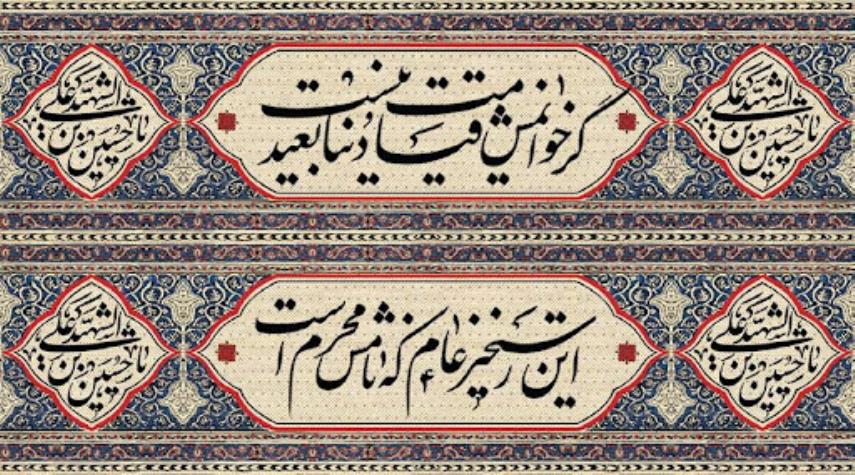 یا حسین بن علی الشهید
گر خوانمش قیامت دنیا بعید نیست
یا حسین بن علی الشهید
یا حسین بن علی الشهید
این رستخیز عام که نامش محرم است
یا حسین بن علی الشهید